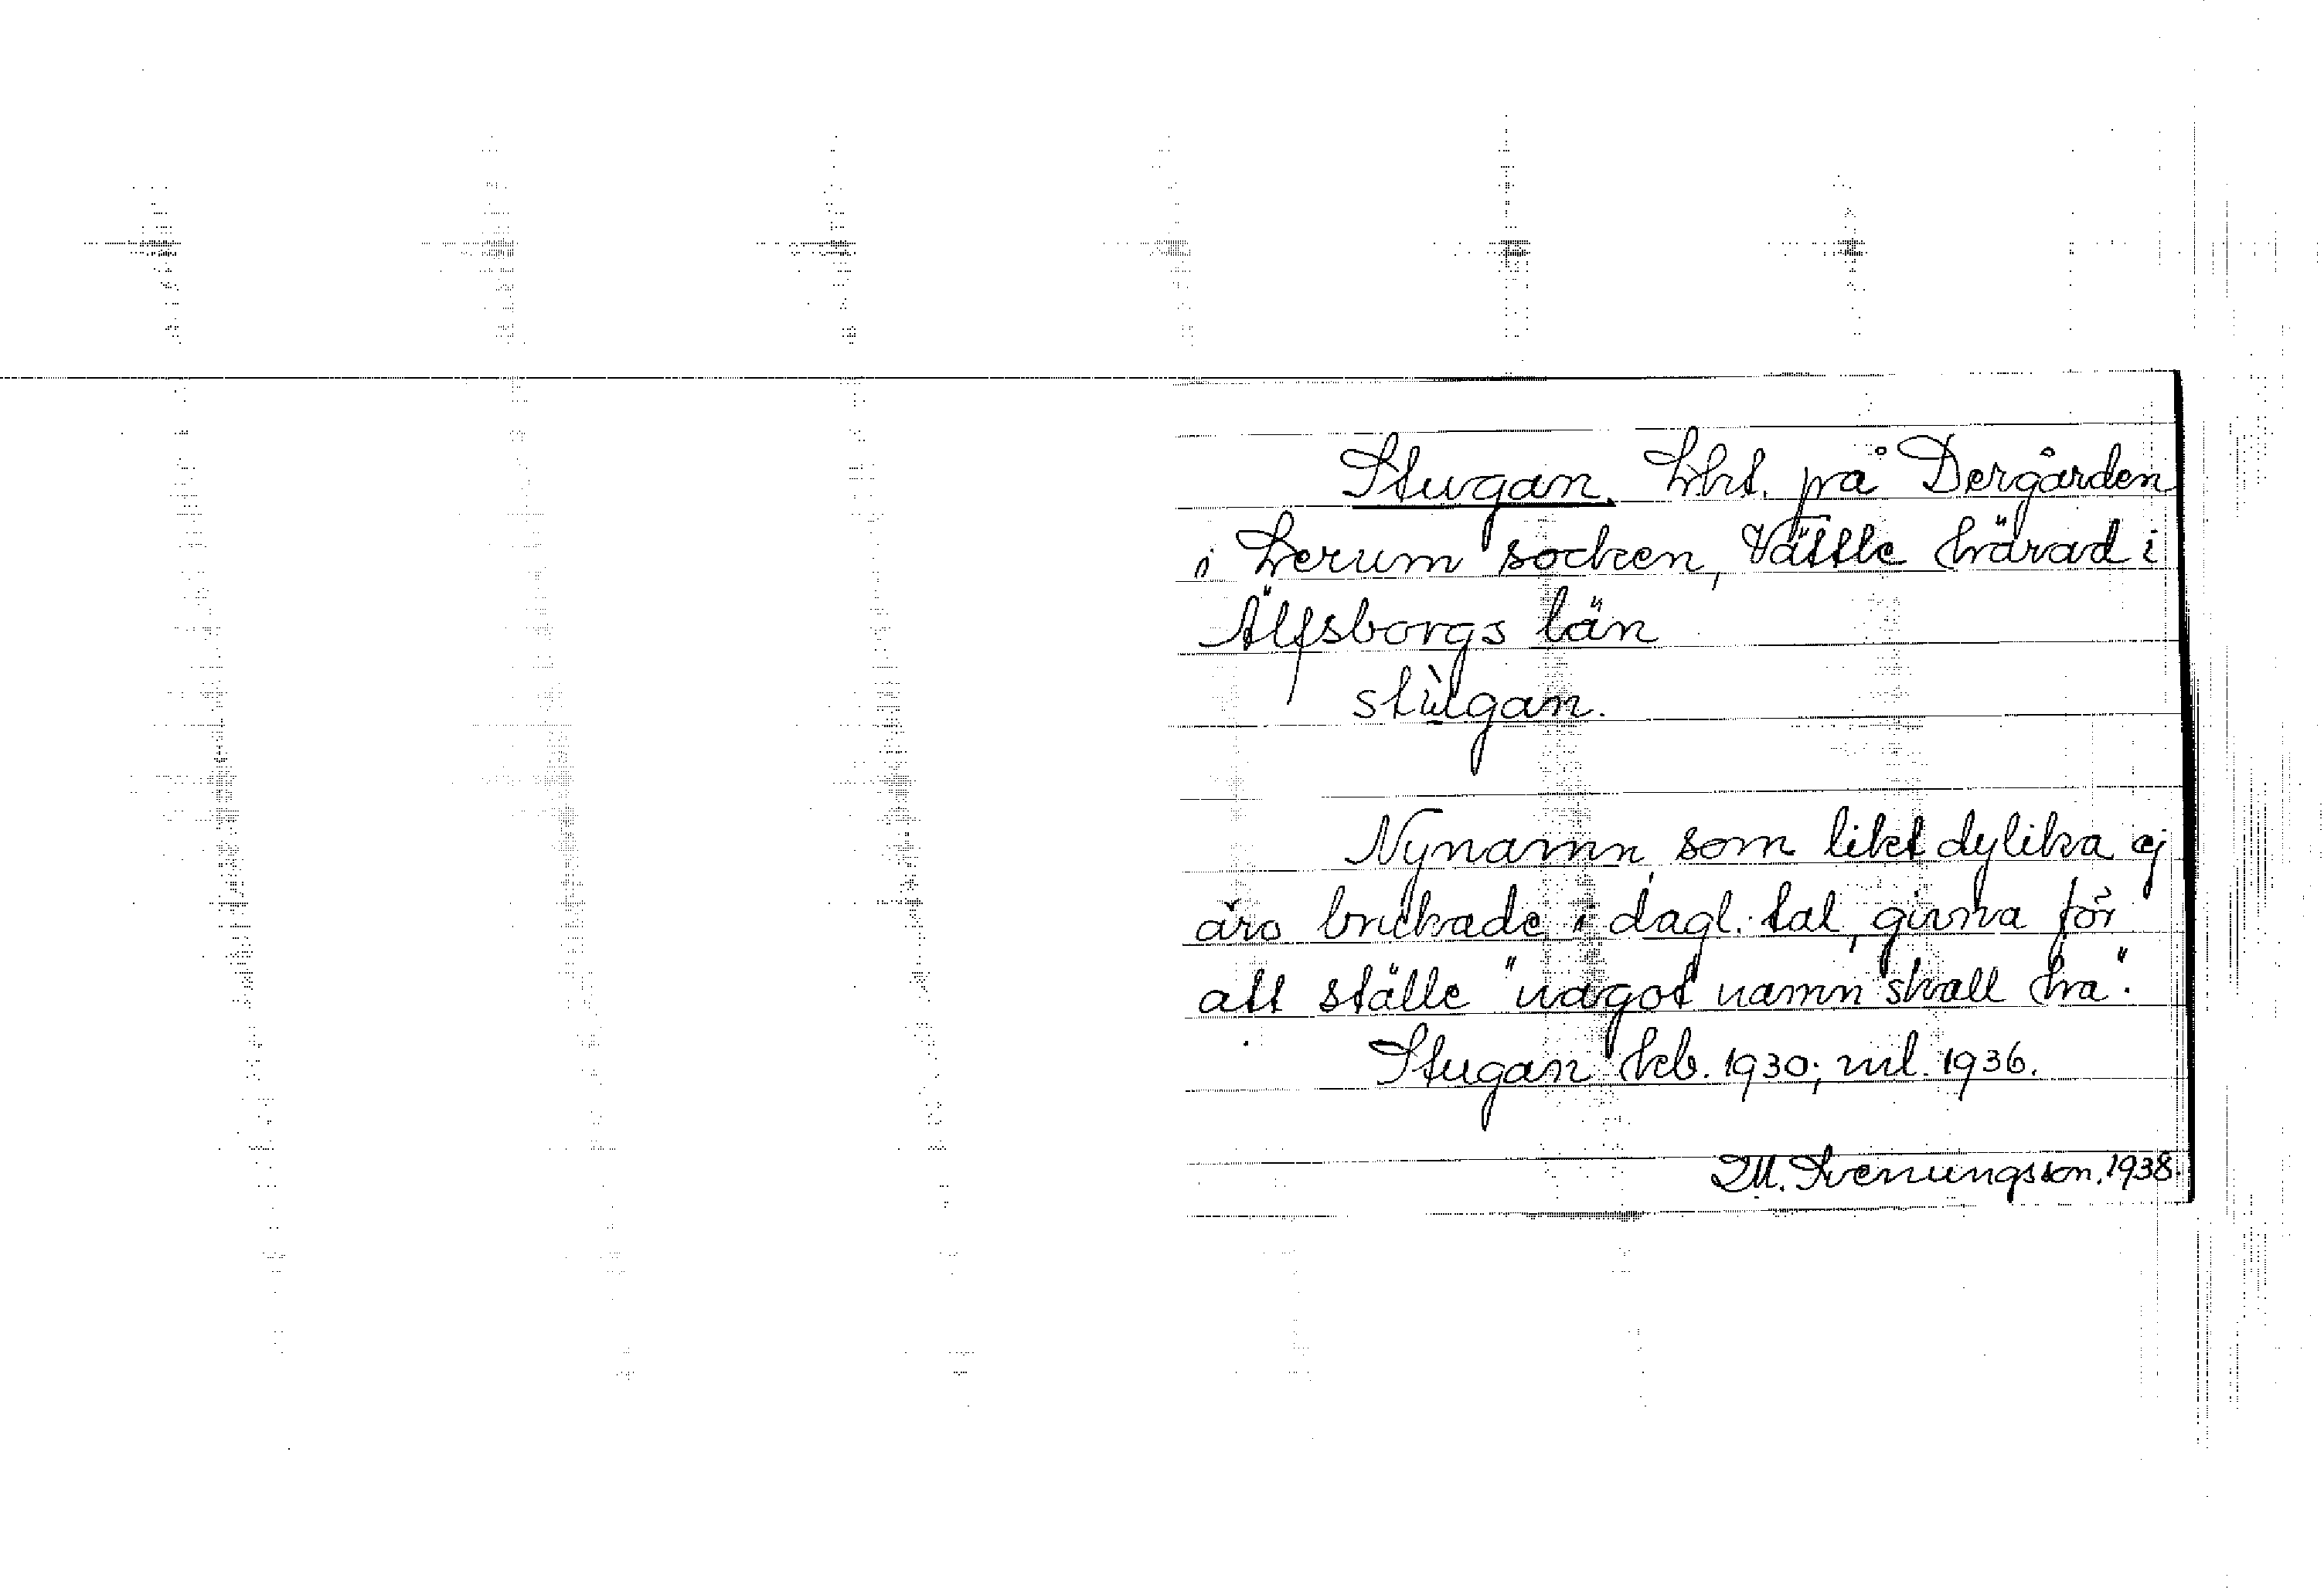 Stugan. Lht. på Dergården
i Lerum socken, Vättle härad i
Älfsborgs län
stùgan.
Nynamn, som likt dylika ej
äro brukade i dagl. tal, givna för
att ställe "något namn skall ha".
Stugan kcb. 1930; ml. 1936.
M. Svenungsson. 1938.